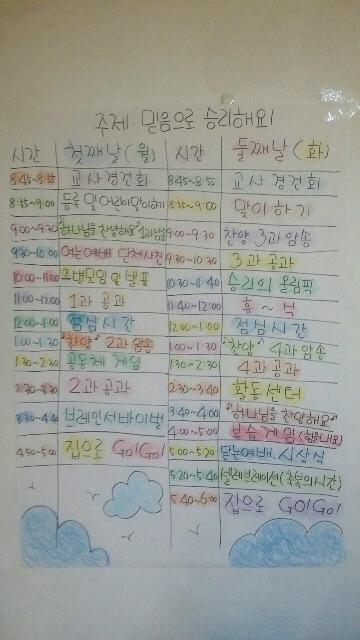 주제: 믿음으로 승리해요!
시간 첫째날(월) 시간 둘째날(화)
8:45~8:55 교사경건회 8:45~8:55 교사경건회
8:55~9:00 등록 및 어린이맞이하기 8:55~9:00 맞이하기
9:00~9:30 "하나님을 찬양해요" 1과암송 9:00~9:30 찬양 3과암송
9:30~10:00 여는예배 단체사진 9:30~10:30 3과 공과
10:00~11:00 조별모임 및 발표 10:30~11:40 승리의 올림픽
11:00~12:00 1과 공과 11:40~12:00 휴~식
12:00~1:00 점심시간 12:00~1:00 점심시간
1:00~1:30 "찬양" 2과암송 1:00~1:30 "찬양" 4과암송
1:30~2:30 공동체 게임 1:30~2:30 4과 공과
2:30~3:30 2과공과 2:30~3:40 활동센터
3:30~4:40 브레인서바이벌 3:40~4:00 "하나님을 찬양해요"
4:00~5:00 복습게임(힘을내요)
4:50~5:00 집으로 GO!GO! 5:00~5:20 닫는예배, 시상식
5:20~5:40 셀레브레이션(축복의시간)
5:40~6:00 집으로 GO!GO!